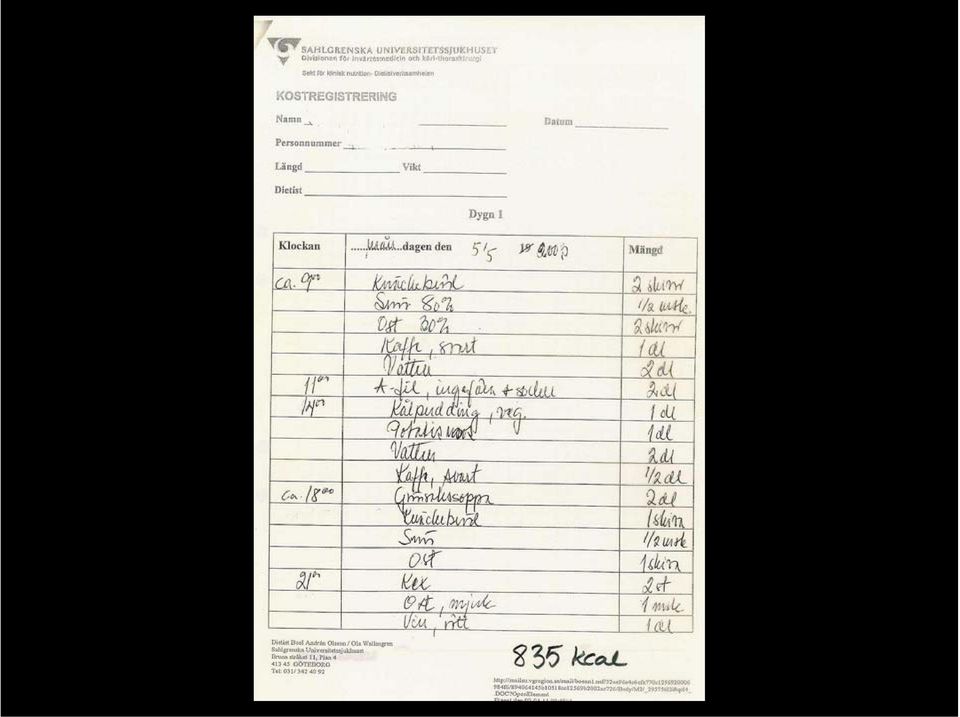 SAHLGRENSKA UNIVERSITETSSJUKHUSET
Divisionen för invärtesmedicin och kärl-thoraxkirurgi
Sekt för klinisk nutrition- Dietistverksamheten
KOSTREGISTRERING
Namn Datum
Personnummer
Längd Vikt
Dietist
Dygn 1
Klockan mån dagen den 5/5 Mängd
ca. 9⁰⁰ Knäckebröd 2 skivor
Smör 80% 1/2 msk.
Ost 30% 2 skivor
Kaffe, svart 1 dl
Vatten 2 dl
11⁰⁰ A-fil, ingefära + socker 2 dl
14⁰⁰ Kålpudding, veg. 1 dl
Potatis 1 dl
Vatten 2 dl
Kaffe, svart 1/2 dl
Ca. 18⁰⁰ Grönsakssoppa 2 dl
Knäckebröd 1 skiva
Smör 1/2 msk
Ost 1 skiva
21⁰⁰ Kex 2 st
Ost, mjuk 1 msk
Vin, rött 1 dl
Dietist Bosl Andrén Olsson / Ola Wallengren
Sahlgrenska Universitetssjukhuset
Bruna stråket 11, Plan 4
413 45 GÖTEBORG
Tel: 031/ 342 40 92
835 kcal